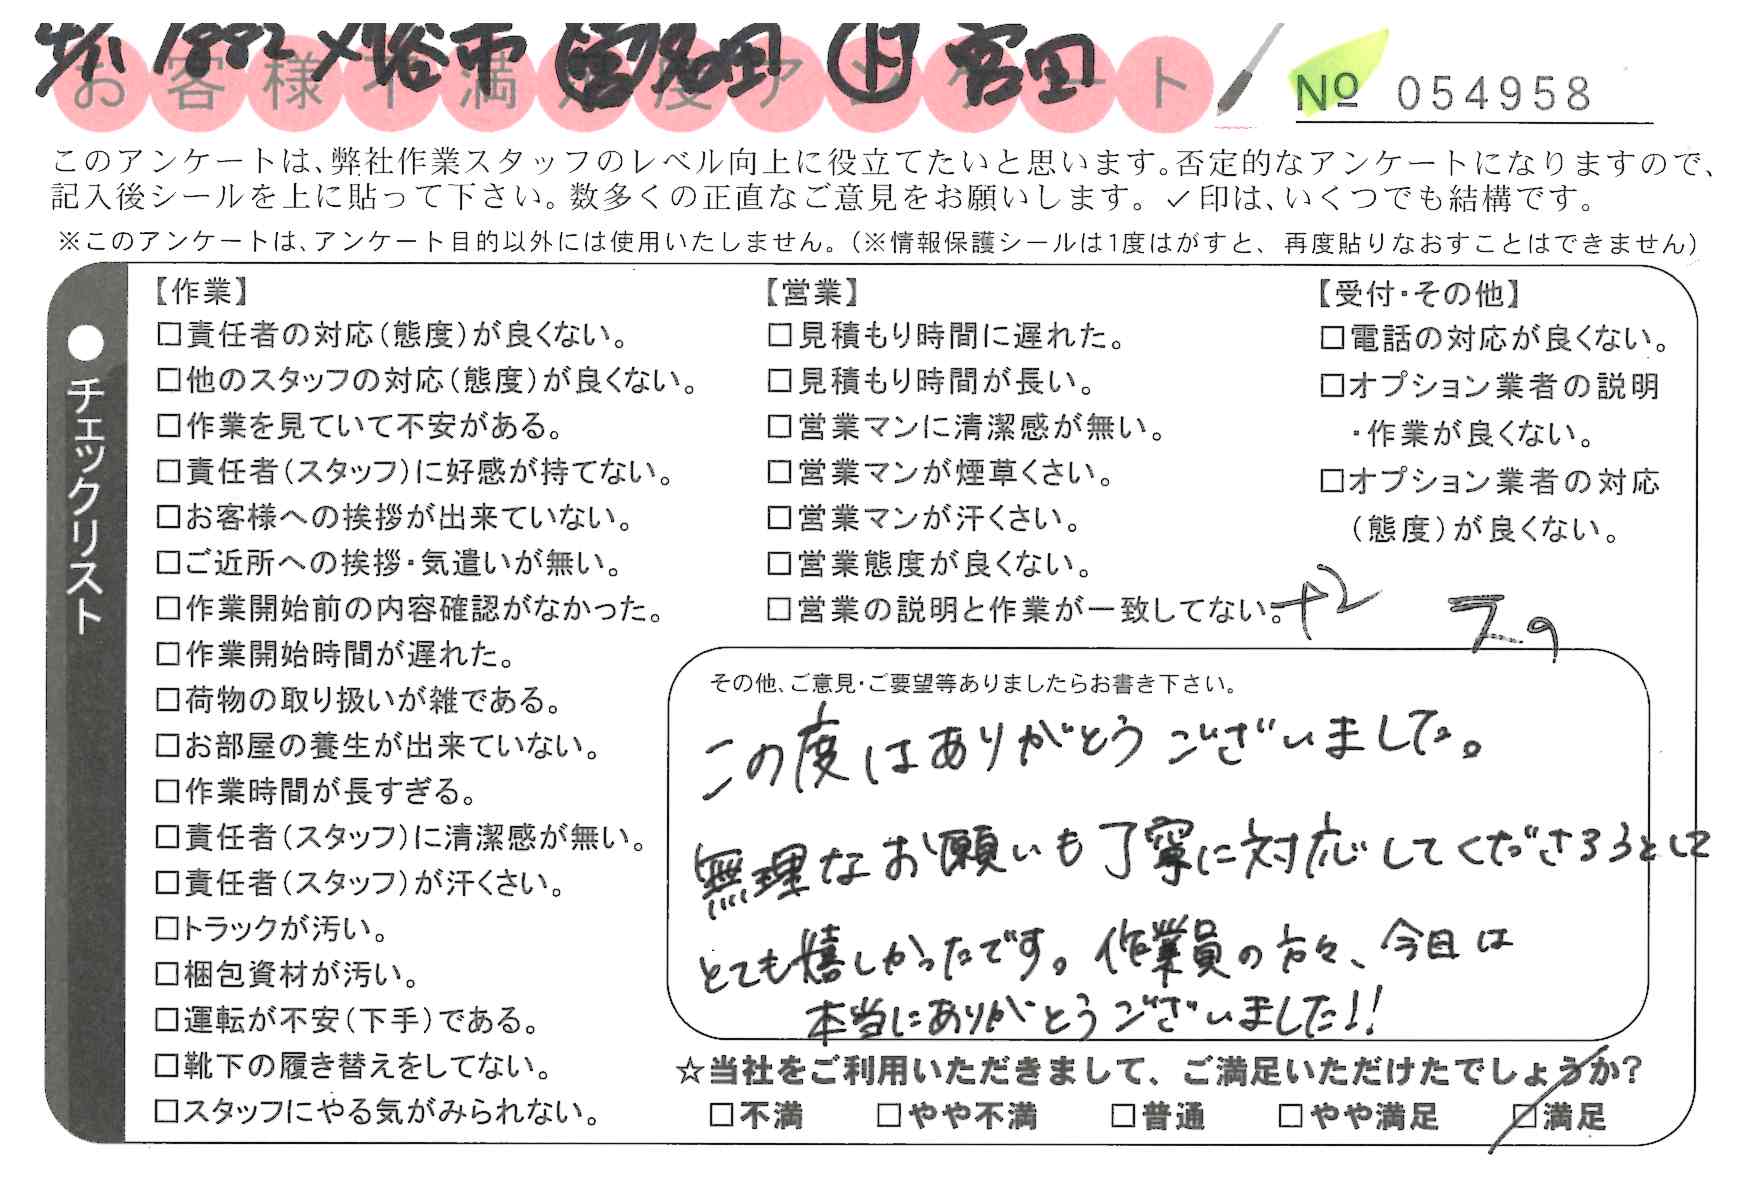 4/1 1882 谷市 田 下 宮田
お客様不満足度アンケート
№ 054958
このアンケートは、弊社作業スタッフのレベル向上に役立てたいと思います。否定的なアンケートになりますので、
記入後シールを上に貼って下さい。数多くの正直なご意見をお願いします。✓印は、いくつでも結構です。
※このアンケートは、アンケート目的以外には使用いたしません。(※情報保護シールは1度はがすと、再度貼りなおすことはできません)
●チェックリスト
【作業】
□責任者の対応(態度)が良くない。
□他のスタッフの対応(態度)が良くない。
□作業を見ていて不安がある。
□責任者(スタッフ)に好感が持てない。
□お客様への挨拶が出来ていない。
□ご近所への挨拶・気遣いが無い。
□作業開始前の内容確認がなかった。
□作業開始時間が遅れた。
□荷物の取り扱いが雑である。
□お部屋の養生が出来ていない。
□作業時間が長すぎる。
□責任者(スタッフ)に清潔感が無い。
□責任者(スタッフ)が汗くさい。
□トラックが汚い。
□梱包資材が汚い。
□運転が不安(下手)である。
□靴下の履き替えをしてない。
□スタッフにやる気がみられない。
【営業】
□見積もり時間に遅れた。
□見積もり時間が長い。
□営業マンに清潔感が無い。
□営業マンが煙草くさい。
□営業マンが汗くさい。
□営業態度が良くない。
□営業の説明と作業が一致してない。
【受付・その他】
□電話の対応が良くない。
□オプション業者の説明
・作業が良くない。
□オプション業者の対応
(態度)が良くない。
+2
その他、ご意見・ご要望等ありましたらお書き下さい。
この度はありがとうございました。
無理なお願いも丁寧に対応してくださろうとして
とても嬉しかったです。作業員の方々、今日は
本当にありがとうございました!!
☆当社をご利用いただきまして、ご満足いただけたでしょうか?
□不満 □やや不満 □普通 □やや満足 □満足